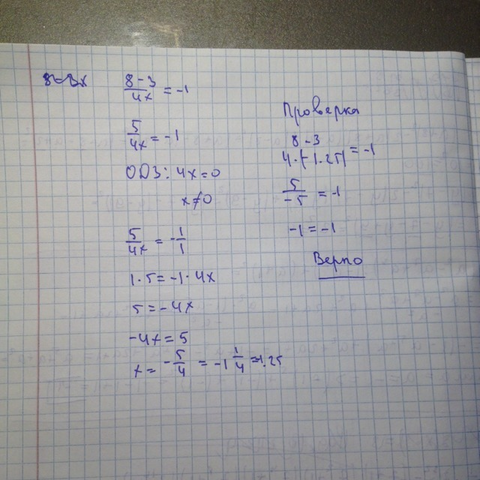 8-3/4x = -1
5/4x = -1
ОДЗ: 4x=0
x≠0
5/4x = -1/1
1·5=-1·4x
5=-4x
-4x=5
x= -5/4 = -1 1/4 =-1.25
Проверка
8-3/4·(-1.25) = -1
5/-5 = -1
-1=-1
Верно